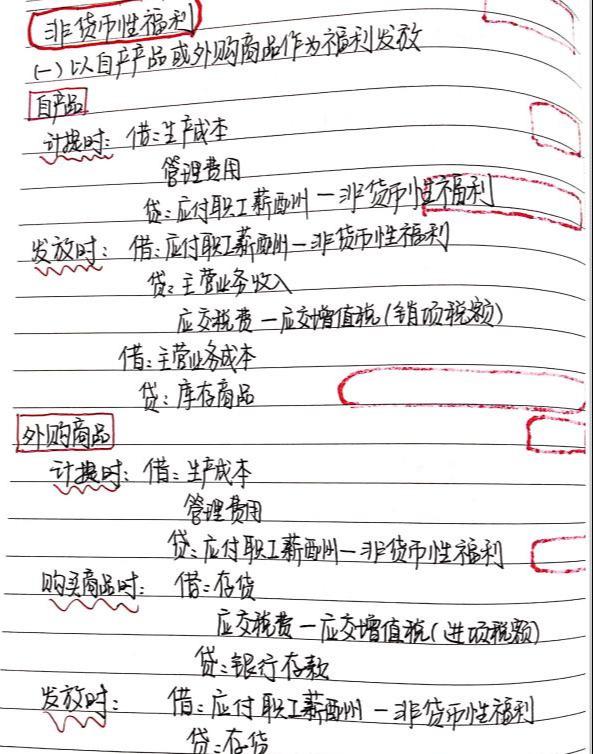 非货币性福利
(一)以自产产品或外购商品作为福利发放
自产品
计提时: 借:生产成本
管理费用
贷:应付职工薪酬—非货币性福利
发放时: 借:应付职工薪酬—非货币性福利
贷:主营业务收入
应交税费—应交增值税(销项税额)
借:主营业务成本
贷:库存商品
外购商品
计提时: 借:生产成本
管理费用
贷:应付职工薪酬—非货币性福利
购买商品时: 借:存货
应交税费—应交增值税(进项税额)
贷:银行存款
发放时: 借:应付职工薪酬—非货币性福利
贷:存货